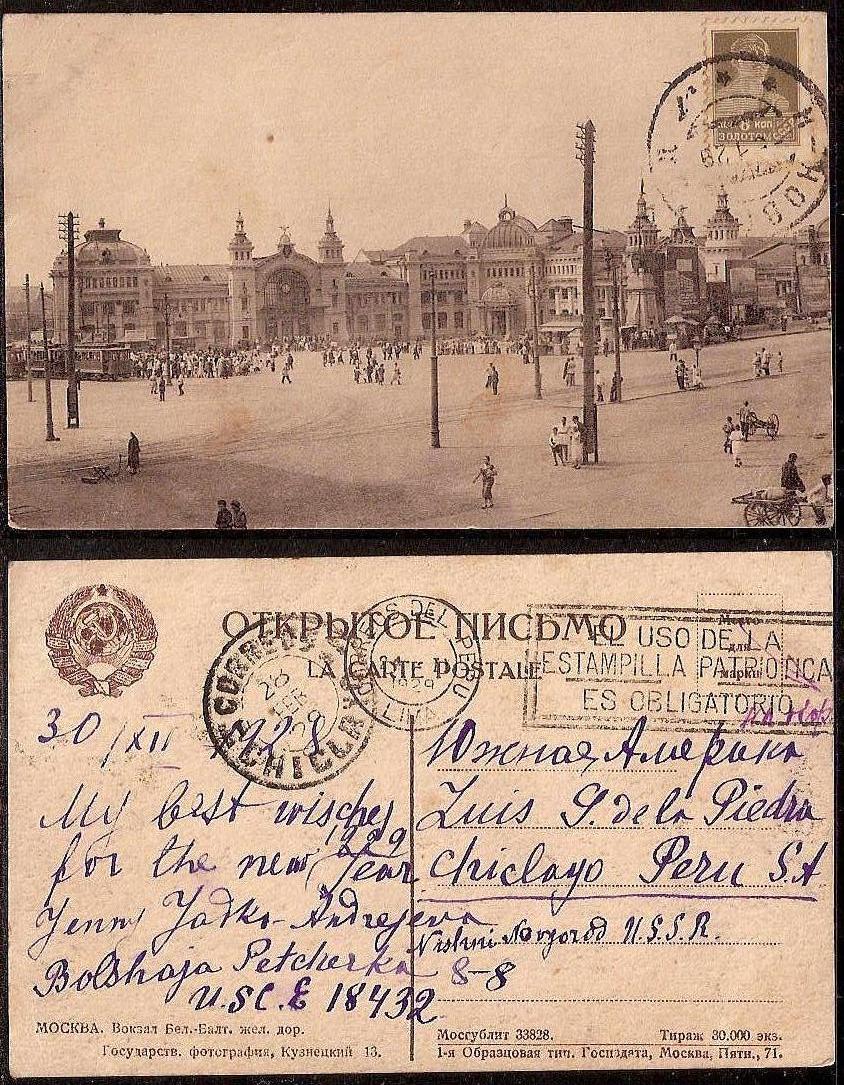 КОП.
ЗОЛОТОМ
ОТКРЫТОЕ ПИСЬМО
LA CARTE POSTALE
Место
для
марки
CORREOS
28
FEB
29
CHICLAYO
CORREOS DEL PERU
1929
LIMA
EL USO DE LA
ESTAMPILLA PATRIOTICA
ES OBLIGATORIO
30/XII 1928
My best wisches
for the new 1929 Year
Jenny Jadko-Andrejewa
Bolshaja Petcherka 8-8
U.S.C.E 18432
Южная Америка
Luis S. de la Piedra
Chiclayo Peru S.A
Nishni Novgorod U.S.S.R.
МОСКВА. Вокзал Бел.-Балт. жел. дор.
Государств. фотография, Кузнецкий 13.
Мосгублит 33828. Тираж 30.000 экз.
1-я Образцовая тип. Госиздата, Москва, Пятн., 71.